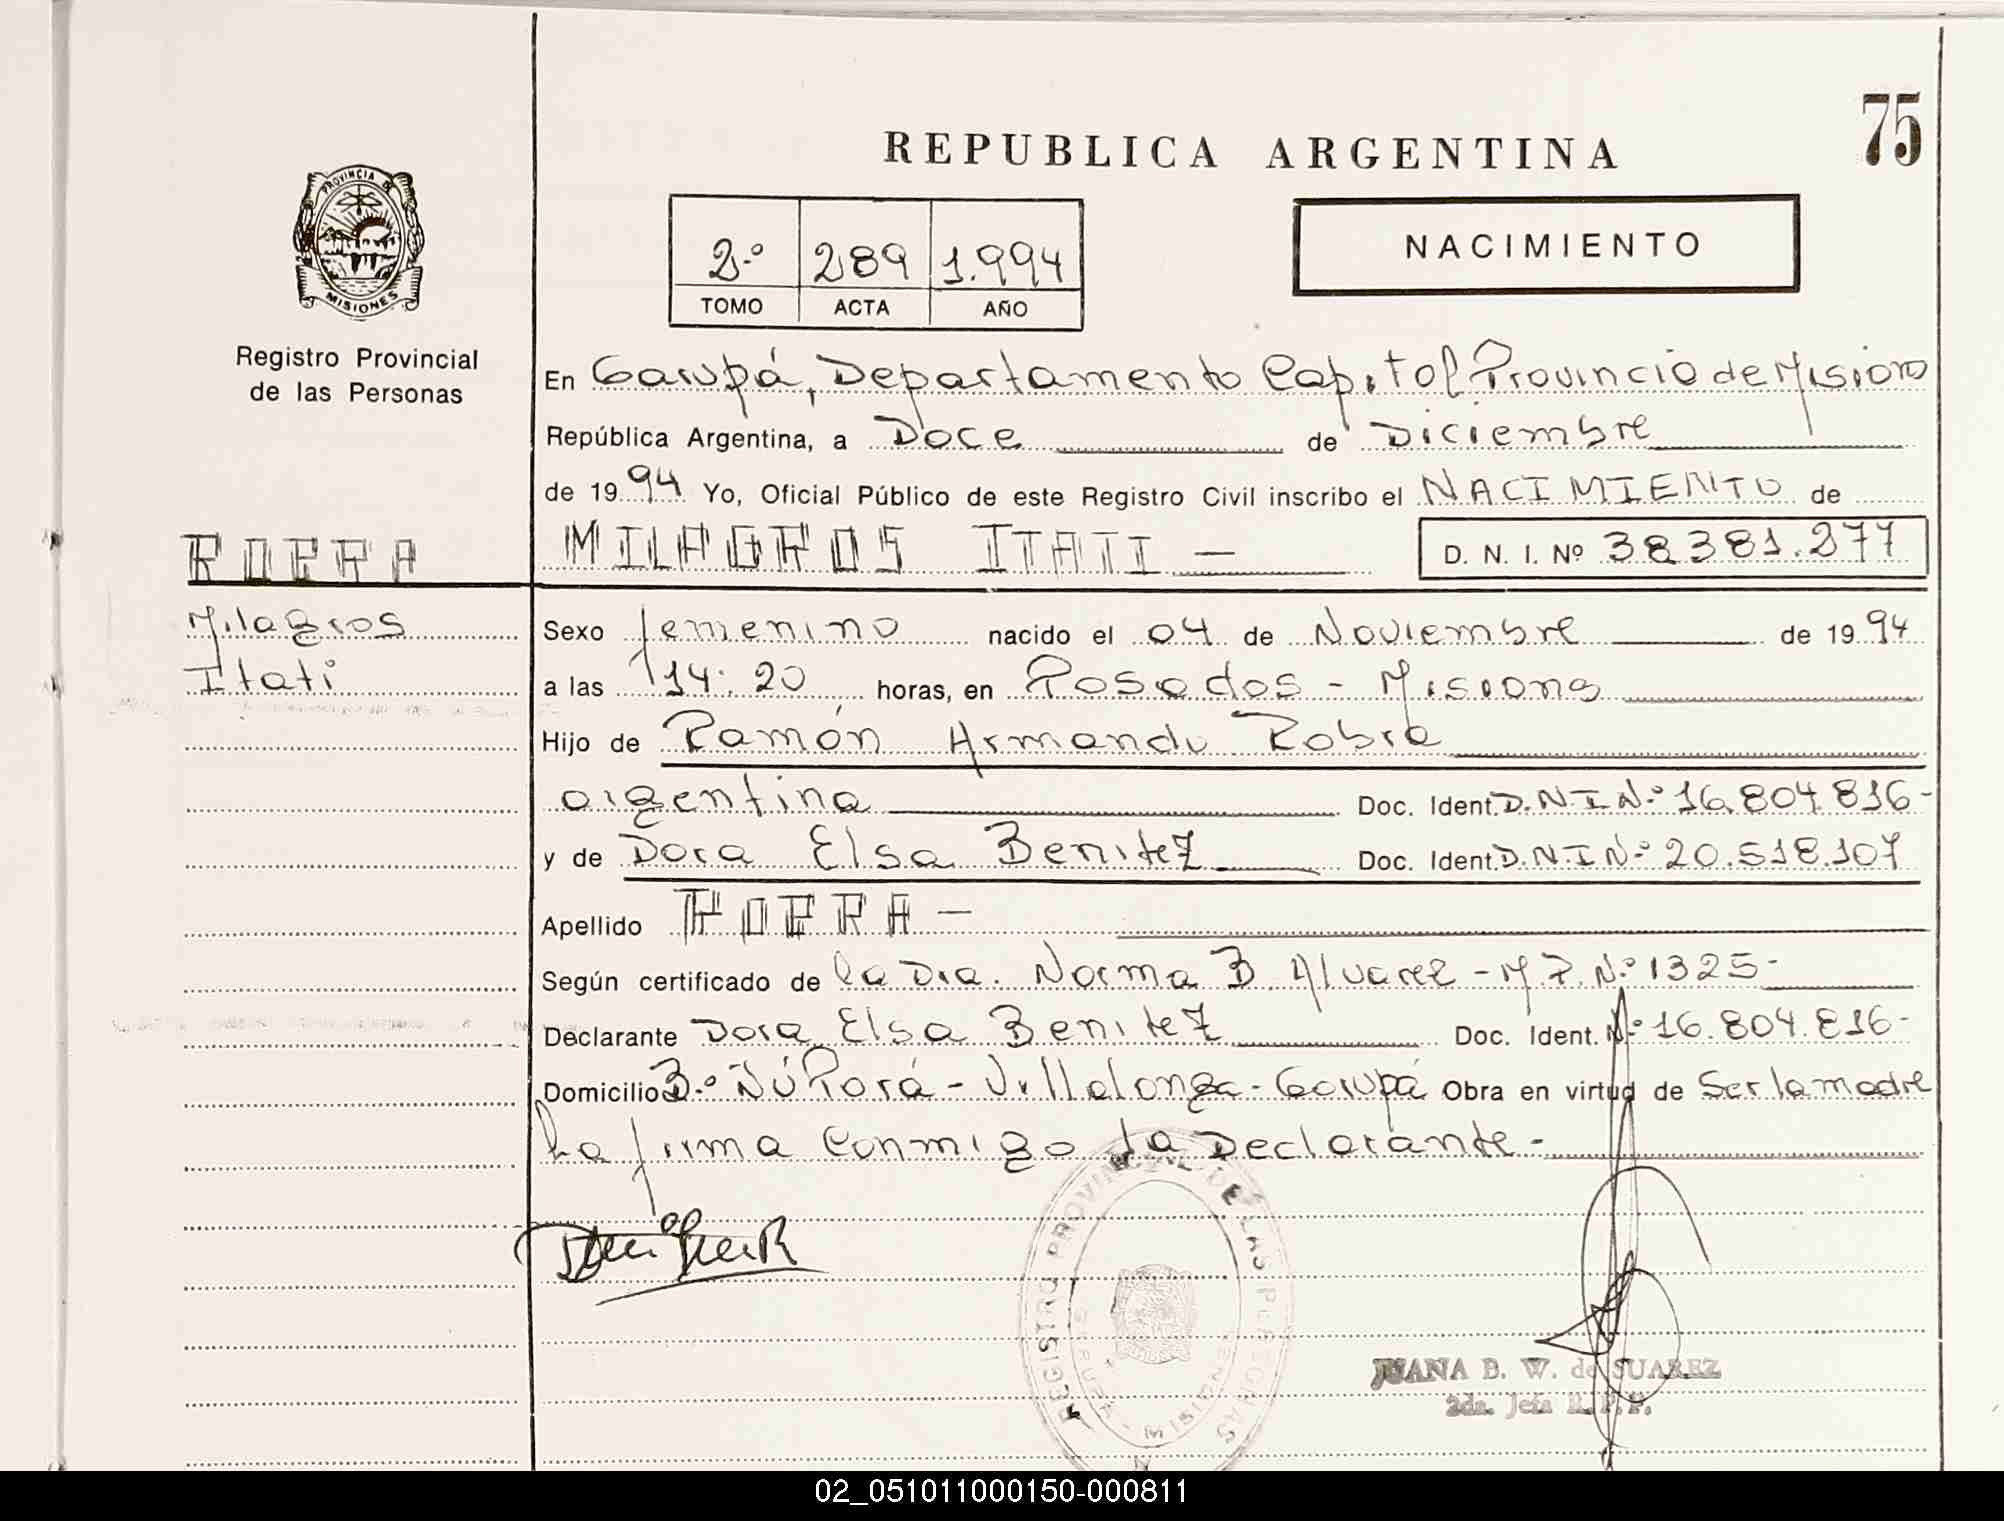 75
REPUBLICA ARGENTINA
PROVINCIA DE
MISIONES
Registro Provincial
de las Personas
2º 289 1.994
TOMO ACTA AÑO
NACIMIENTO
En Garupá, Departamento Capital Provincia de Misiones
República Argentina, a Doce de Diciembre
de 1994 Yo, Oficial Público de este Registro Civil inscribo el NACIMIENTO de
ROBRA MILAGROS ITATI — D. N. I. Nº 38.381.277
Milagros
Itati
Sexo femenino nacido el 04 de Noviembre de 1994
a las 14:20 horas, en Posadas - Misiones
Hijo de Ramón Armando Robra
argentina Doc. Ident. D.N.I Nº 16.804.816-
y de Dora Elsa Benitez Doc. Ident. D.N.I Nº 20.518.107
Apellido ROBRA —
Según certificado de la Dra. Norma B Alvarez - M.P. Nº 1325-
Declarante Dora Elsa Benitez Doc. Ident. Nº 16.804.816-
Domicilio Bº Ñú Porá - Villalonga - Garupá Obra en virtud de Ser la madre
La firma conmigo La Declarante-
REGISTRO PROVINCIAL DE LAS PERSONAS
GARUPA - MISIONES
JUANA B. W. de SUAREZ
2da. Jefa R.P.P.
02_051011000150-000811